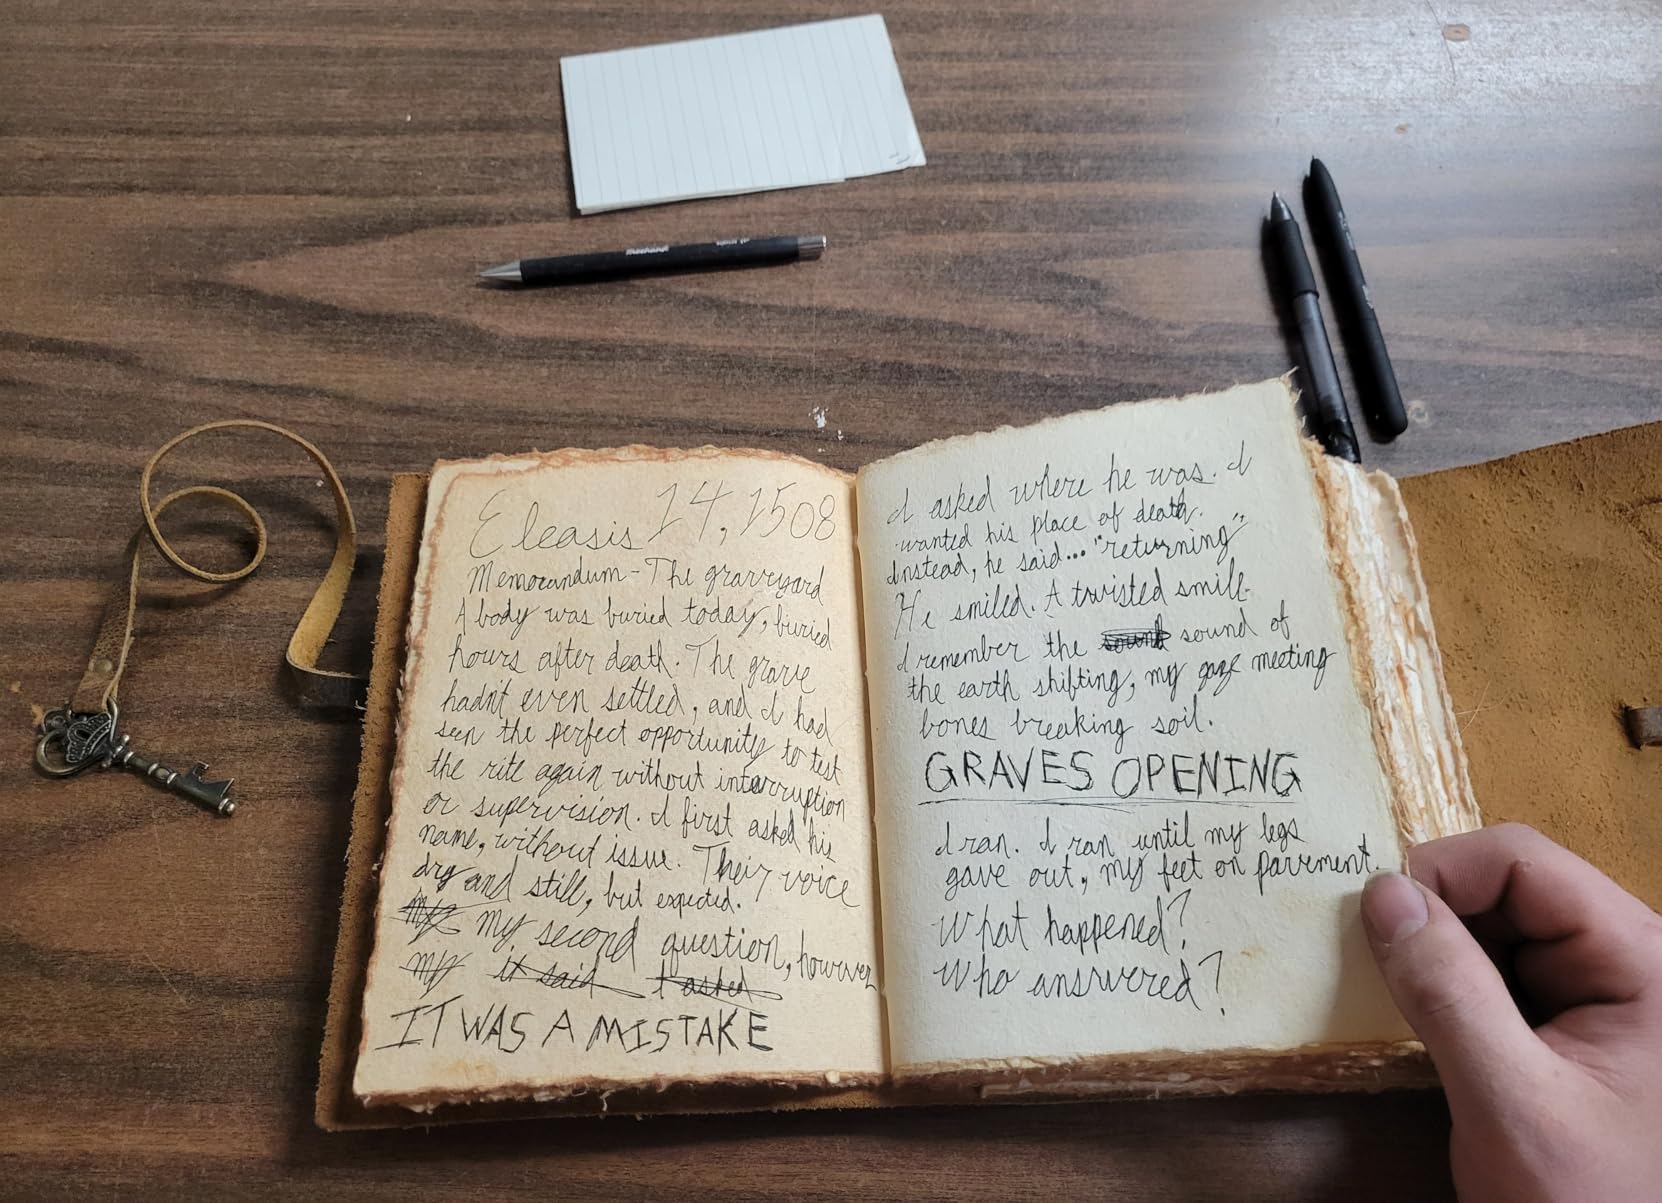 Eleasis 14, 1508
Memorandum - The graveyard
A body was buried today, buried
hours after death. The grave
hadn't even settled, and I had
seen the perfect opportunity to test
the rite again without interruption
or supervision. I first asked his
name, without issue. Their voice
dry and still, but expected.
my my second question, however
my it said I asked
IT WAS A MISTAKE
I asked where he was. I
wanted his place of death.
Instead, he said... "returning"
He smiled. A twisted smile.
I remember the sound sound of
the earth shifting, my gaze meeting
bones breaking soil.
GRAVES OPENING
I ran. I ran until my legs
gave out, my feet on pavement.
What happened?
Who answered?